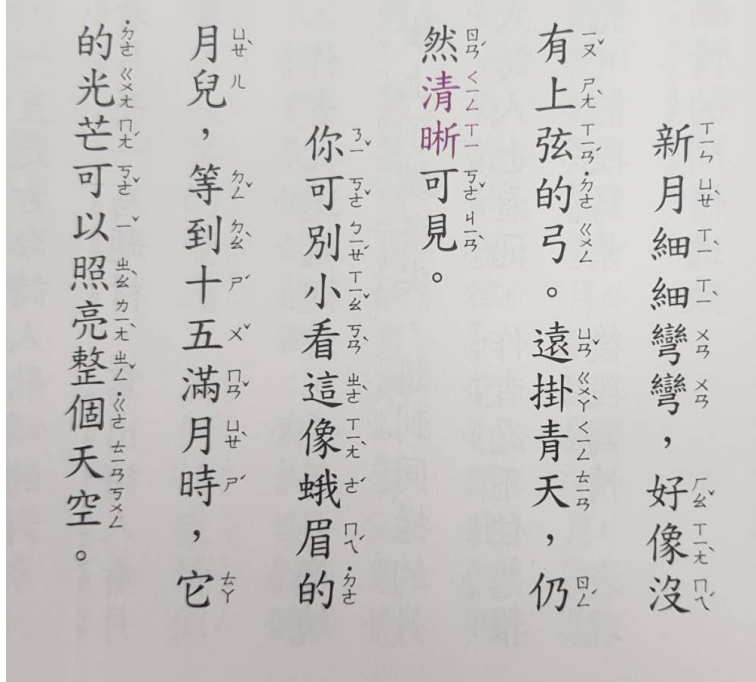 新月細細彎彎，好像沒
有上弦的弓。遠掛青天，仍
然清晰可見。
你可別小看這像蛾眉的
月兒，等到十五滿月時，它
的光芒可以照亮整個天空。